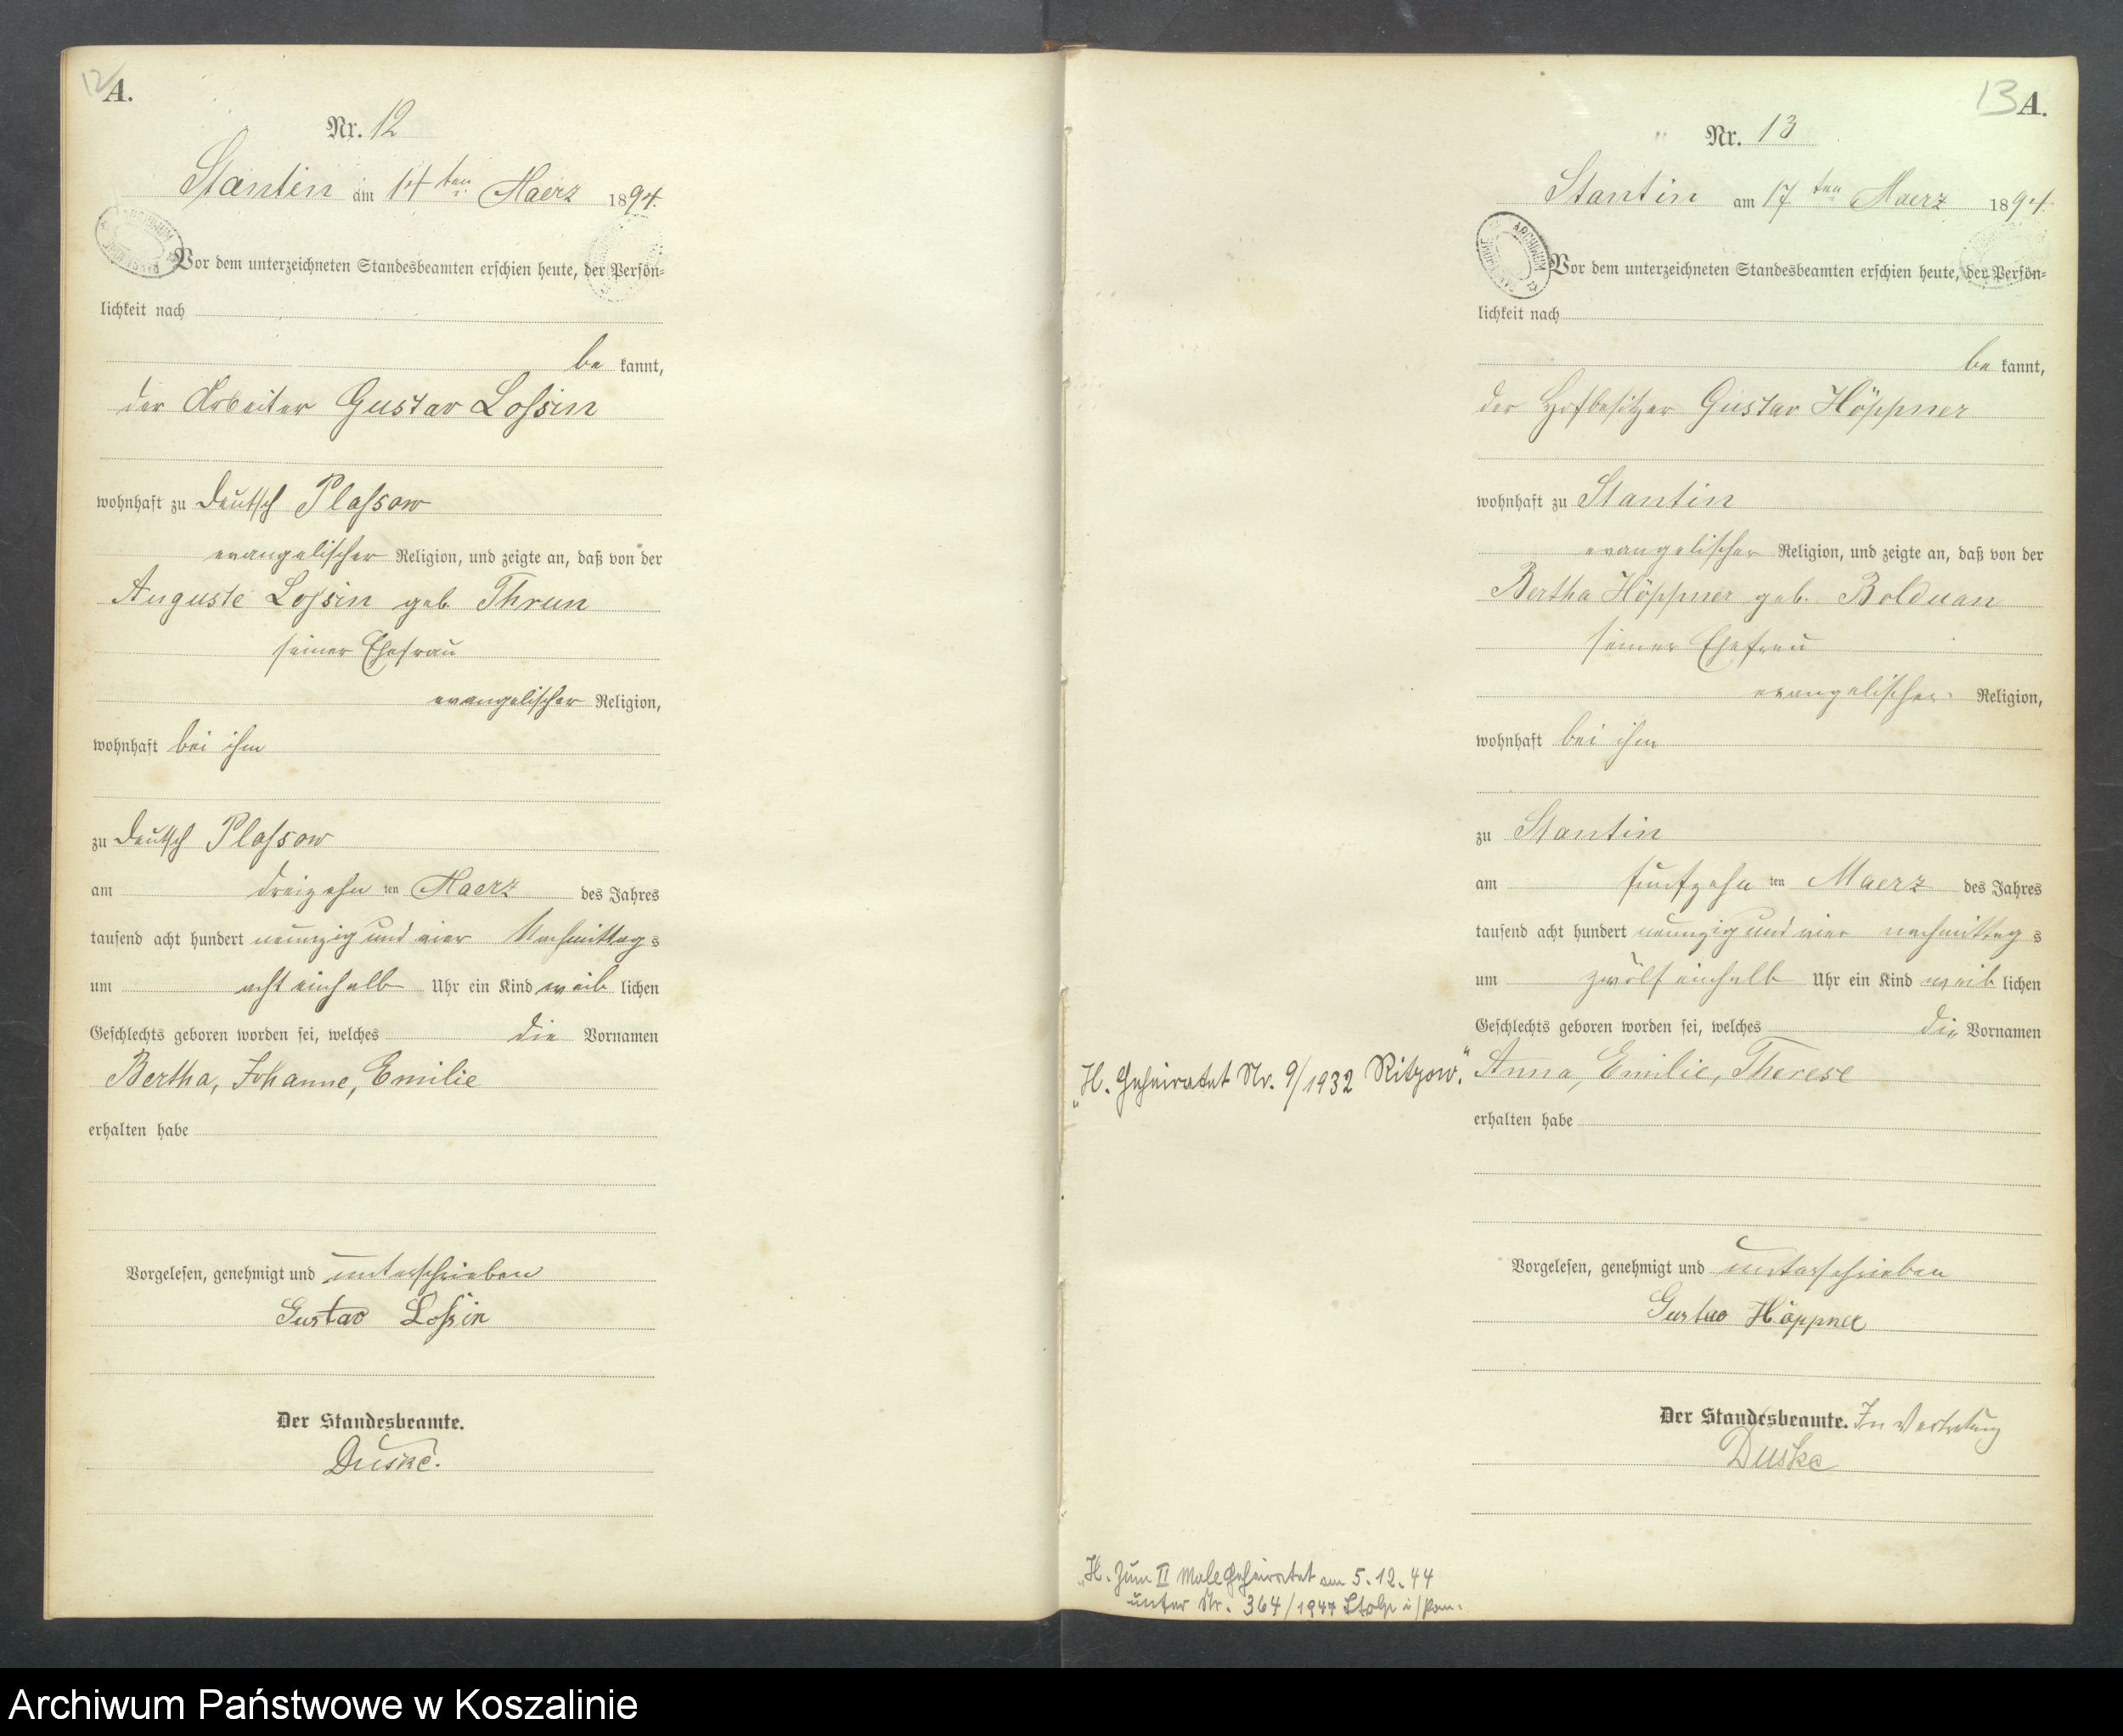 12 A.
Nr. 12
Stantin am 14ten Maerz 1894.
Vor dem unterzeichneten Standesbeamten erschien heute, der Persön=
lichkeit nach
be kannt,
der Arbeiter Gustav Loſsin
wohnhaft zu Deutsch Plaſsow
evangelischer Religion, und zeigte an, daß von der
Auguste Loſsin geb. Thrun
seiner Ehefrau
evangelischer Religion,
wohnhaft bei ihm
zu Deutsch Plaſsow
am dreizehn ten Maerz des Jahres
tausend acht hundert neunzig und vier Nachmittag s
um acht einhalb Uhr ein Kind weib lichen
Geschlechts geboren worden sei, welches die Vornamen
Bertha, Johanne, Emilie
erhalten habe
Vorgelesen, genehmigt und unterschrieben
Gustav Loſsin
Der Standesbeamte.
Duske.
13 A.
Nr. 13
Stantin am 17ten Maerz 1894.
ARCHIWUM
Vor dem unterzeichneten Standesbeamten erschien heute, der Persön=
lichkeit nach
be kannt,
der Hofbesitzer Gustav Höppner
wohnhaft zu Stantin
evangelischer Religion, und zeigte an, daß von der
Bertha Höppner geb. Bolduan
seiner Ehefrau
evangelischer Religion,
wohnhaft bei ihm
zu Stantin
am fünfzehn ten Maerz des Jahres
tausend acht hundert neunzig und vier nachmittag s
um zwölf einhalb Uhr ein Kind weib lichen
Geschlechts geboren worden sei, welches die Vornamen
„H. Geheiratet Nr. 9/1932 Ritzow."
Anna, Emilie, Therese
erhalten habe
Vorgelesen, genehmigt und unterschrieben
Gustav Höppner
Der Standesbeamte. In Vertretung
Duske
„H. Zum II Male geheiratet am 5.12.44
unter Nr. 364/1944 Stolp i/Pom.
Archiwum Państwowe w Koszalinie